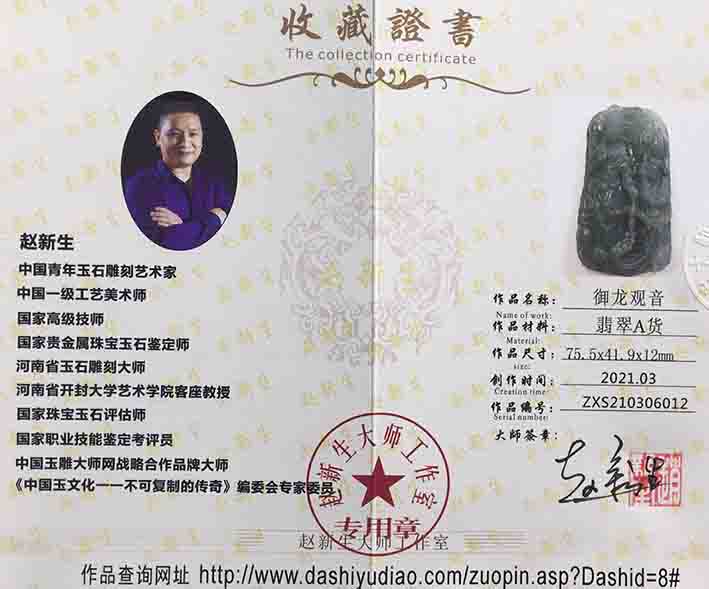 收藏證書
The collection certificate
赵新生
中国青年玉石雕刻艺术家
中国一级工艺美术师
国家高级技师
国家贵金属珠宝玉石鉴定师
河南省玉石雕刻大师
河南省开封大学艺术学院客座教授
国家珠宝玉石评估师
国家职业技能鉴定考评员
中国玉雕大师网战略合作品牌大师
《中国玉文化——不可复制的传奇》编委会专家委员
作品名称：御龙观音
Name of work:
作品材料：翡翠A货
Material:
作品尺寸：75.5x41.9x12mm
size:
创作时间：2021.03
Creation time:
作品编号：ZXS210306012
Serial number:
大师签章：
赵新生
赵新生大师工作室
专用章
赵新生大师工作室
作品查询网址 http://www.dashiyudiao.com/zuopin.asp?Dashid=8#